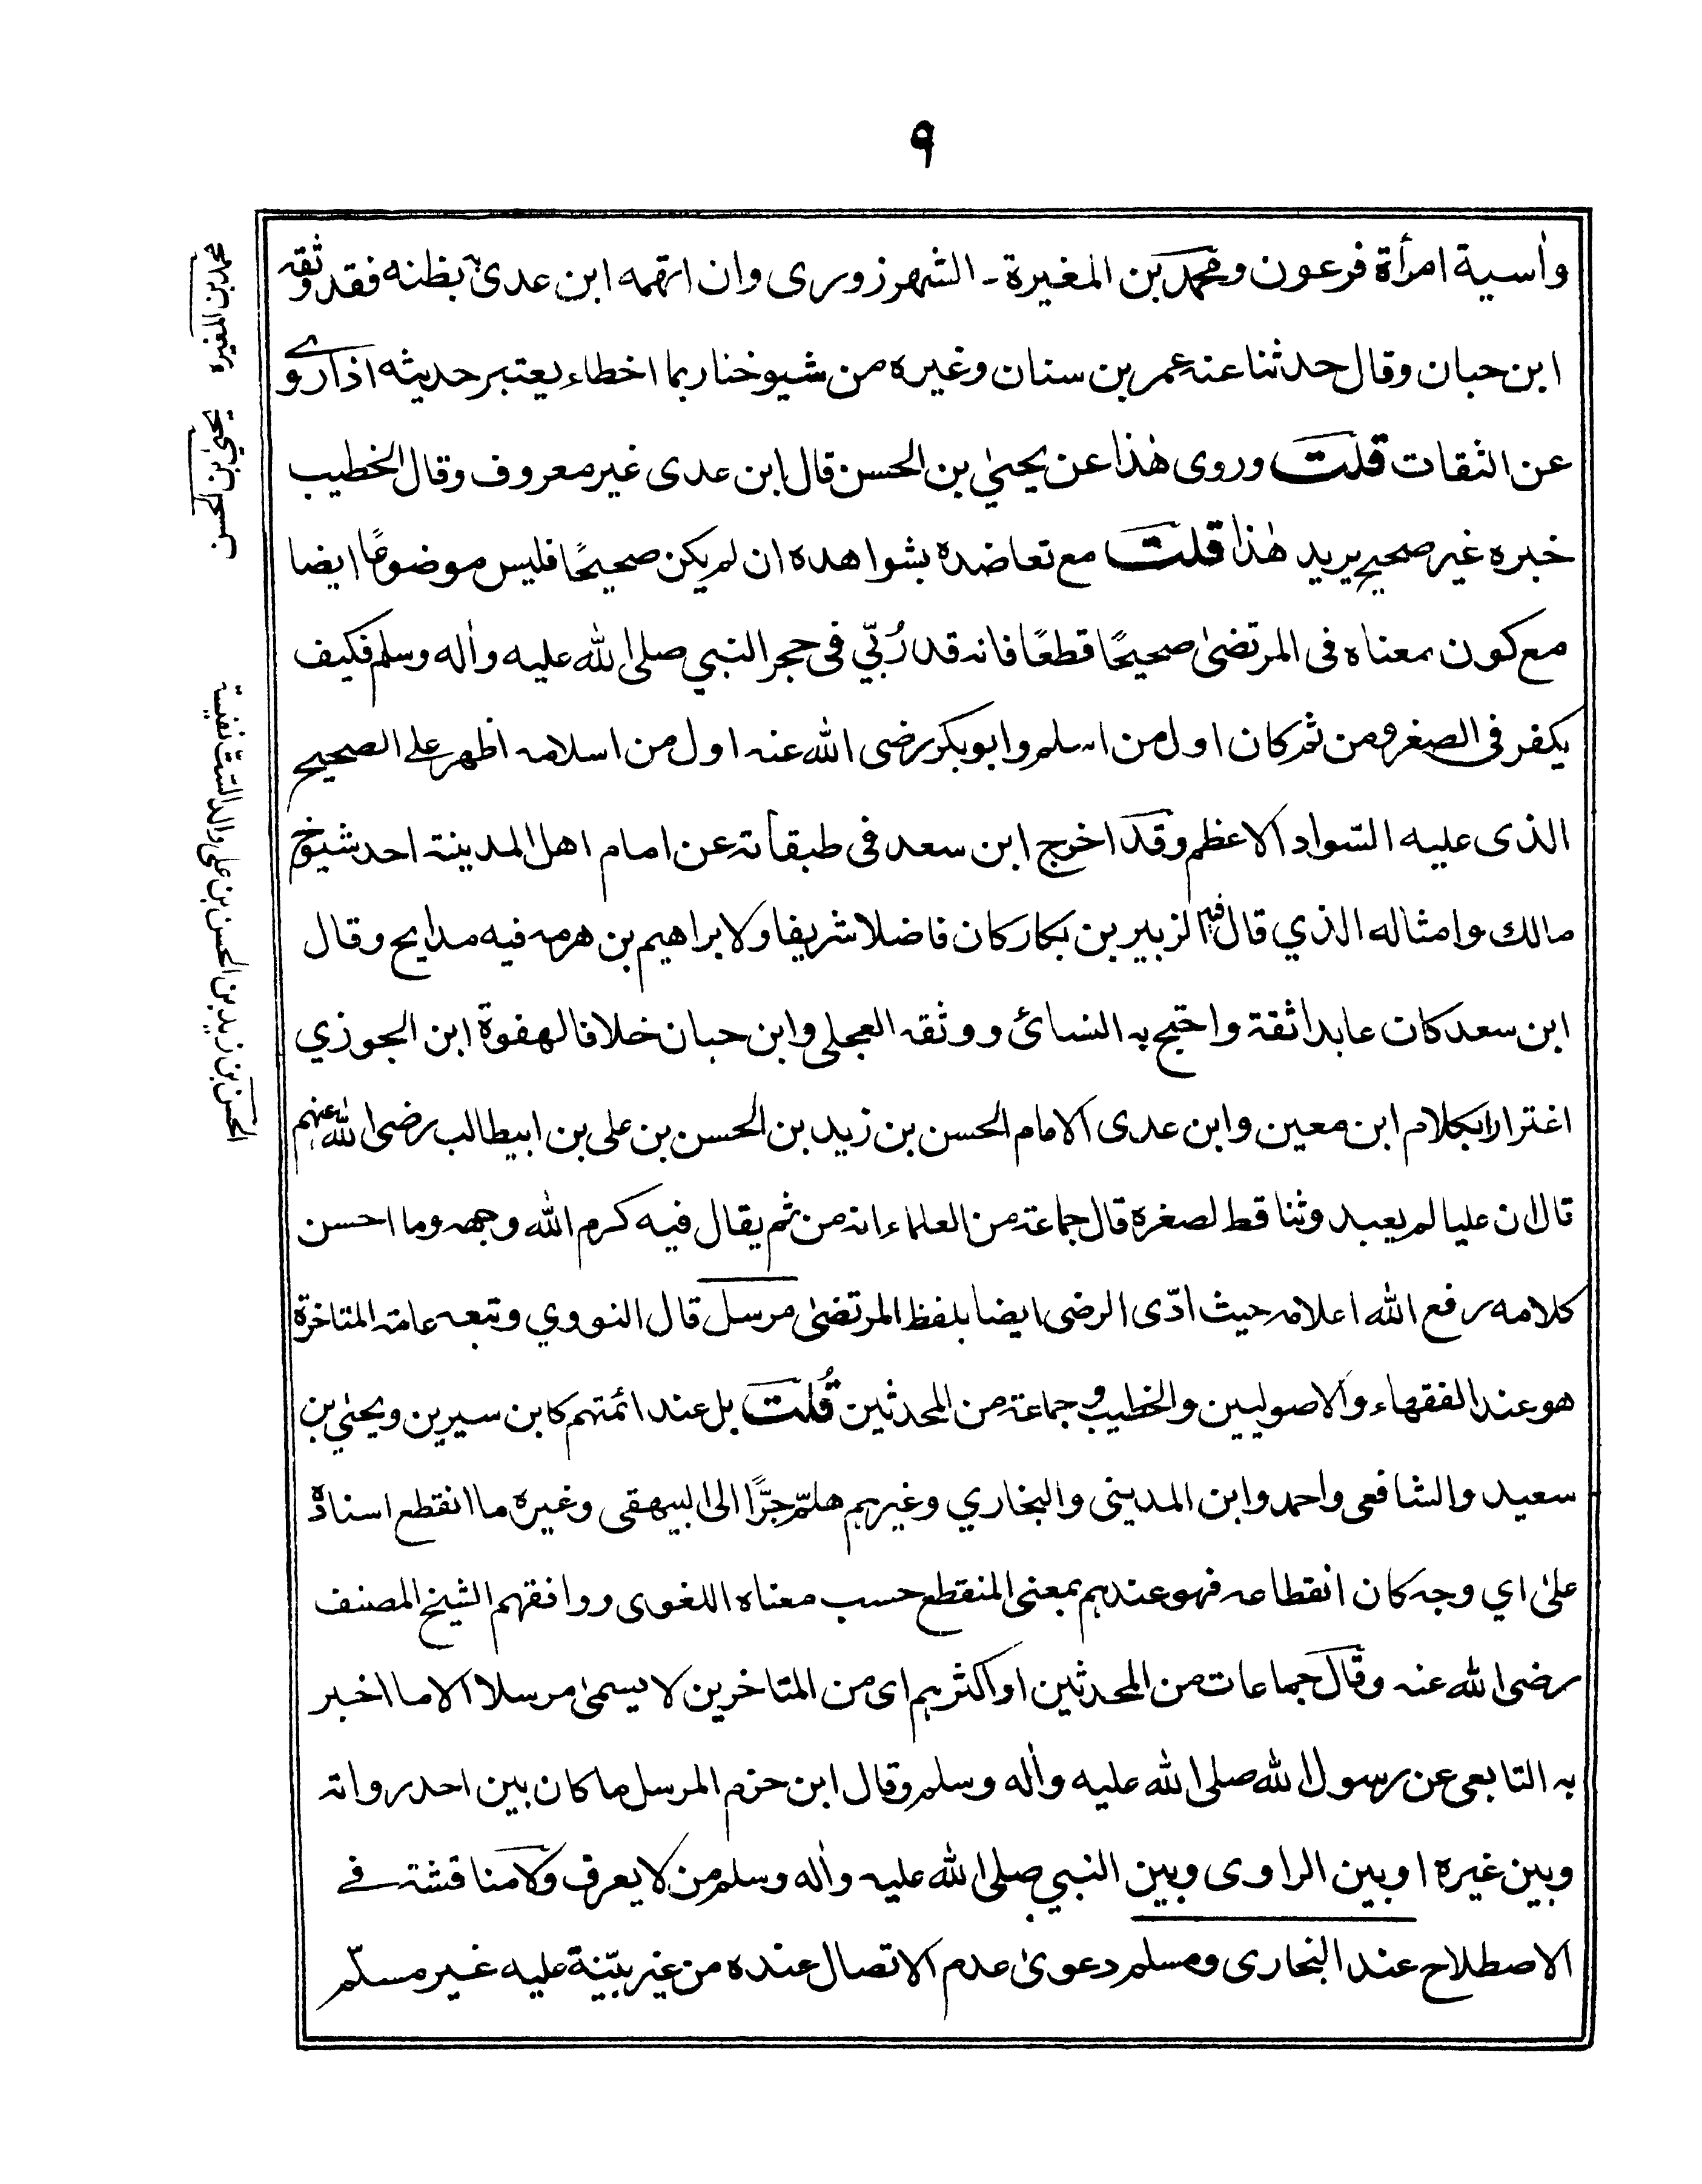 ٩
واٰسية امرأة فرعون ومحمد بن المغيرة ۔ الشهرزوری وان اتهمه ابن عدی بظنه فقد وثقه
ابن حبان وقال حدثنا عنه عمر بن سنان وغيره من شيوخنا ربما اخطاء يعتبر حديثه اذا روے
عن الثقات قلت وروی هٰذا عن يحيیٰ بن الحسن قال ابن عدی غير معروف وقال الخطيب
خبره غير صحيح يريد هٰذا قلت مع تعاضده بشواهده ان لم يكن صحيحًا فليس موضوعًا ايضا
مع كون معناه فی المرتضیٰ صحيحًا قطعًا فانه قد رُبّي فی حجر النبي صلی الله عليه واٰله وسلم فكيف
يكفر فی الصغر ومن ثم كان اول من اسلم وابو بكر رضی الله عنه اول من اسلامه اظهر علی الصحيح
الذی عليه السّواد الاعظم وقد اخرج ابن سعد فی طبقاته عن امام اهل المدينة احد شيوخ
مالك وامثاله الذي قال فيه الزبير بن بكار كان فاضلا شريفا ولابراهيم بن هرمه فيه مدايح وقال
ابن سعد كان عابدا ثقة واحتج به النسائ ووثقه العجلی وابن حبان خلافا لهفوة ابن الجوزي
اغترارا بكلام ابن معين وابن عدی الامام الحسن بن زيد بن الحسن بن علی بن ابيطالب رضی الله عنهم
قال ان عليا لم يعبد وثنا قط لصغره قال جماعة من العلماء انه من ثم يقال فيه كرم الله وجهه وما احسن
كلامه رفع الله اعلامه حيث ادّی الرضی ايضا بلفظ المرتضیٰ مرسل قال النووي وتبعه عامة المتاخرة
هو عند الفقهاء والاصوليين والخطيب وجماعة من المحدثين قُلت بل عند ائمتهم كابن سيرين ويحيیٰ بن
سعيد والشافعی واحمد وابن المدينی والبخاري وغيرہم هلمّ جرًّا الی البيهقی وغيره ما انقطع اسناده
علیٰ اي وجه كان انقطاعه فهو عندہم بمعنی المنقطع حسب معناه اللغوی ووافقهم الشيخ المصنف
رضی الله عنه وقال جماعات من المحدثين او اكثرہم ای من المتاخرين لا يسمیٰ مرسلا الا ما اخبر
به التابعی عن رسول الله صلی الله عليه واٰله وسلم وقال ابن حزم المرسل ما كان بين احد رواته
وبين غيره او بين الراوی وبين النبي صلی الله عليه واٰله وسلم من لا يعرف ولا مناقشة فے
الاصطلاح عند البخاری ومسلم دعویٰ عدم الاتصال عنده من غير بيّنة عليه غير مسلّم
محمد بن المغيرہ
يحيیٰ بن الحسن
الحسن بن زيد بن الحسن بن علی والد الستّ نفيسة